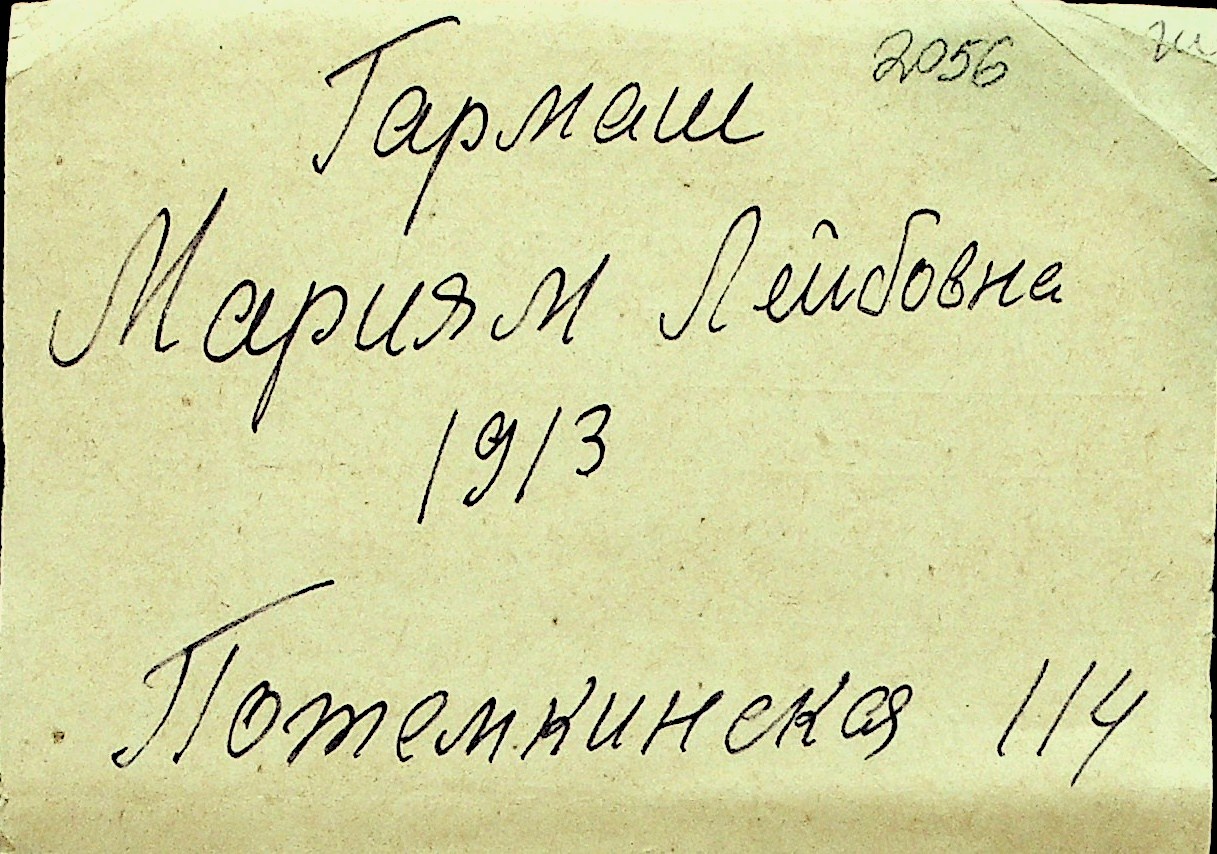 2056
Гармаш
Мариям Лейбовна
1913
Потемкинская 114